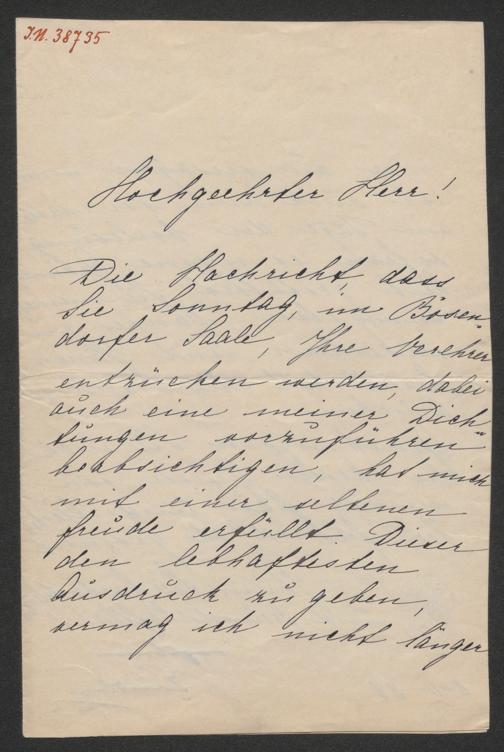 J.N. 38735
Hochgeehrter Herr!
Die Nachricht, dass
Sie Sonntag, im Bösen-
dorfer Saale, Ihre Verehrer
entzücken werden, dabei
auch eine meiner Dich-
tungen vorzuführen
beabsichtigen, hat mich
mit einer seltenen
Freude erfüllt. Dieser
den lebhaftesten
Ausdruck zu geben,
vermag ich nicht länger